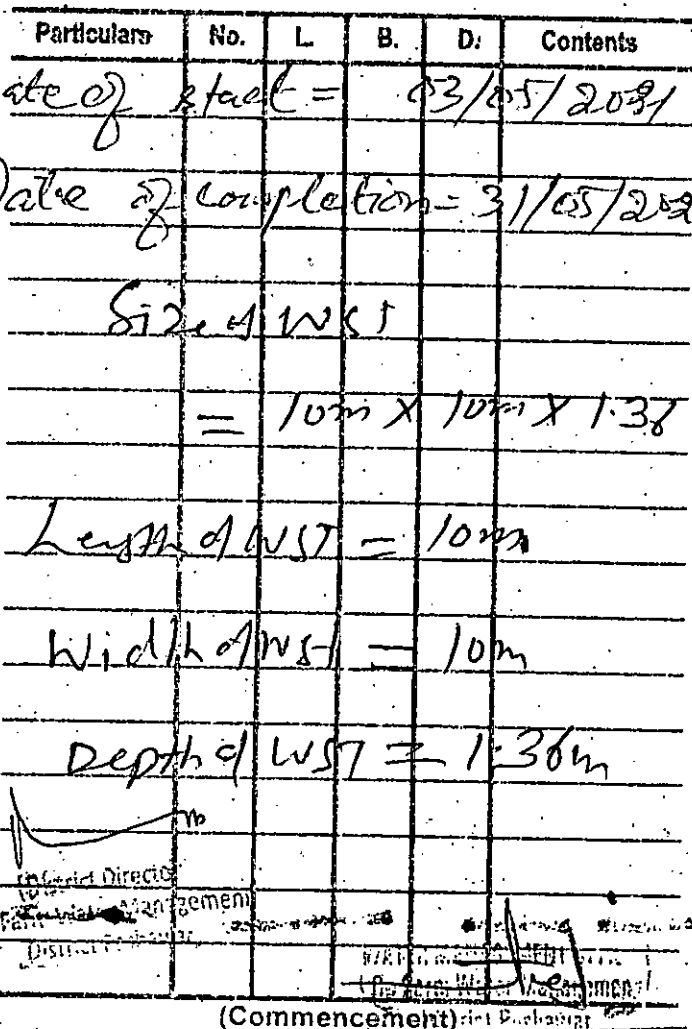 Particulars No. L. B. D. Contents
ate of start = 03/05/2021
Date of completion = 31/05/202
Size of WST
= 10m X 10m X 1.36
Length of WST = 10m
Width of WST = 10m
Depth of WST = 1.36m
District Director
Management
District
Water Management
(Commencement)